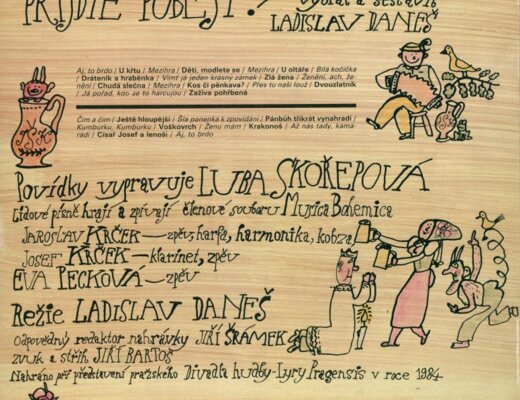 PŘIJĎTE POBEJT!
vybral a sestavil
LADISLAV DANEŠ
Aj, to brdo / U kitu / Mezihra / Děti, modlete se / Mezihra / U oltáře / Bílá kočička
/ Dráteník a hraběnka / Vímť já jeden krásný zámek / Zlá žena / Ženění, ach, že-
nění / Chudá slečna / Mezihra / Kos či pěnkava? / Přes tu naši louž / Dvouzlatník
/ Já pořád, koo se to harcujou / Zaživa pohřbená
Čím a čím / Ještě hloupější / Šla panenka k zpovídání / Pánbůh třikrát vynahradí /
Kumburku, Kumburku / Voškovrch / Ženu mám / Krakonoš / Až nás tady, kama-
rádi / Císař Josef a lenoši / Aj, to brdo
Povídky vypravuje LUBA SKOŘEPOVÁ
Lidové písně hrají a zpívají členové souboru Musica Bohemica
JAROSLAV KRČEK — zpěv, harfa, harmonika, kobza
JOSEF KRČEK — klarinet, zpěv
EVA PECKOVÁ — zpěv
Režie LADISLAV DANEŠ
Odpovědný redaktor nahrávky JIŘÍ ŠRÁMEK
zvuk a střih JIŘÍ BARTOŠ
Nahráno při představení pražského Divadla hudby-Lyry Pragensis v roce 1984